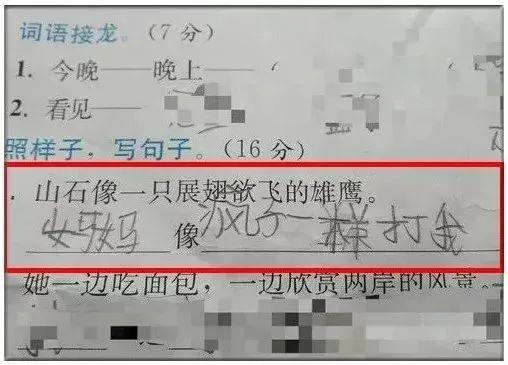 词语接龙。(7分)
1. 今晚——晚上——(
2. 看见——
照样子,写句子。(16分)
. 山石像一只展翅欲飞的雄鹰。
妈妈像疯子一样打我
她一边吃面包,一边欣赏两岸的风景。